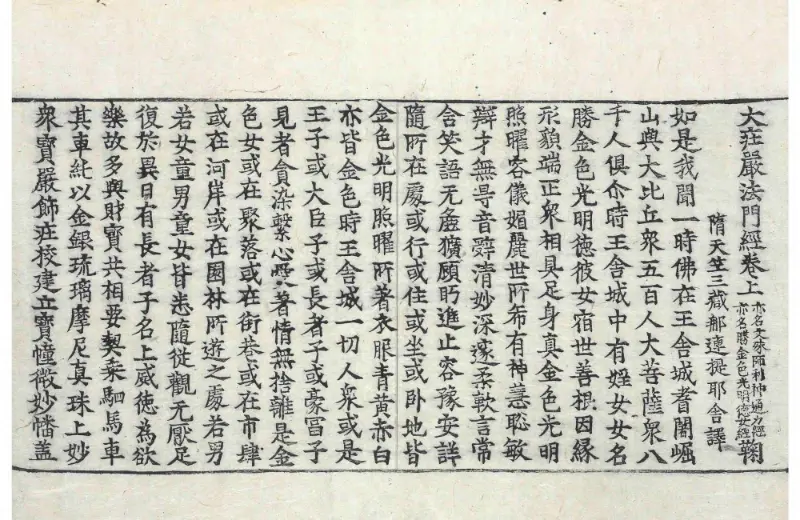 大莊嚴法門經卷上 亦名文殊師利神通力經 亦名勝金色光明德女經 鞠
隋天竺三藏那連提耶舍譯
如是我聞一時佛在王舍城耆闍崛
山與大比丘衆五百人大菩薩衆八
千人俱尒時王舍城中有婬女女名
勝金色光明德彼女宿世善根因緣
形貌端正衆相具足身真金色光明
照曜容儀媚麗世所希有神慧聡敏
辯才無㝵音辭清妙深邃柔軟言常
含笑語无麁獷顧眄進止容豫安詳
隨所在處或行或住或坐或卧地皆
金色光明照曜所著衣服青黃赤白
亦皆金色時王舍城一切人衆或是
王子或大臣子或長者子或豪富子
見者貪染繫心愛著情無捨離是金
色女或在聚落或在街巷或在市肆
或在河岸或在園林所遊之處若男
若女童男童女皆悉隨從觀无厭足
復於異日有長者子名上威德為欲
樂故多與財寶共相要契乘駟馬車
其車純以金銀琉璃摩尼真珠上妙
衆寶嚴飾莊校建立寶幢微妙幡蓋